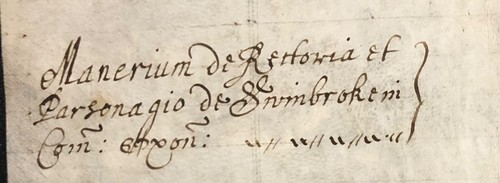 Manerium de Rectoria et
Parsonagio de Swinbroke in
Com: Oxon: